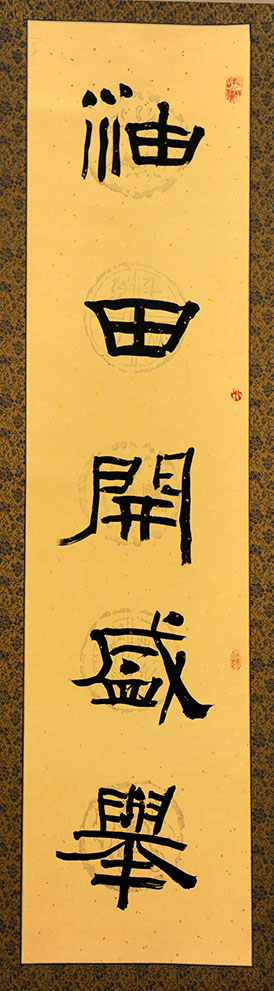 油田開盛舉